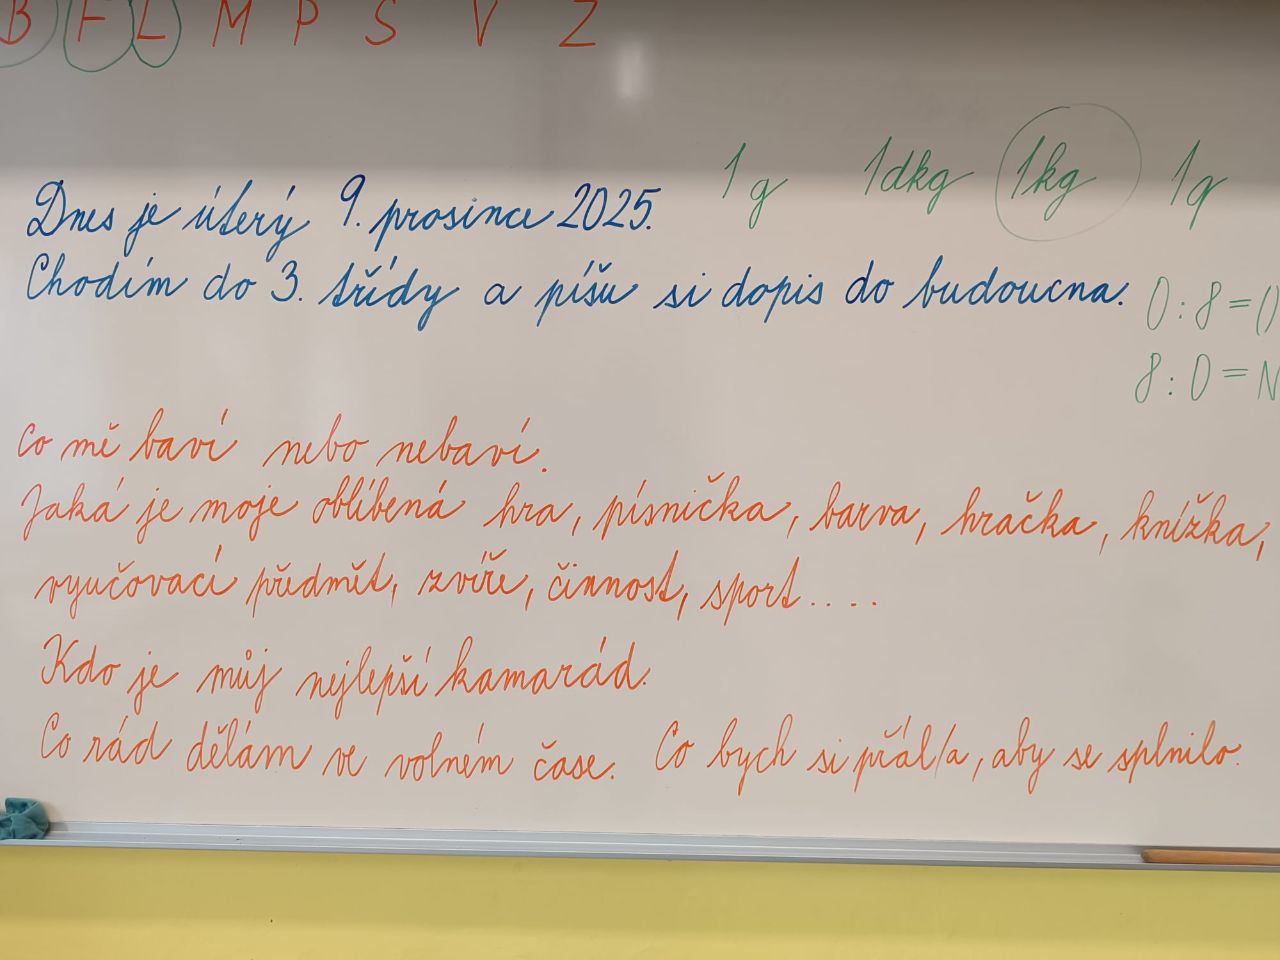 B F L M P S V Z
1g 1dkg 1kg 1q
Dnes je úterý 9. prosince 2025.
Chodím do 3. třídy a píšu si dopis do budoucna.
0 : 8 = 0
8 : 0 = N
Co mě baví nebo nebaví.
Jaká je moje oblíbená hra, písnička, barva, hračka, knížka,
vyučovací předmět, zvíře, činnost, sport....
Kdo je můj nejlepší kamarád.
Co rád dělám ve volném čase. Co bych si přál/a, aby se splnilo.